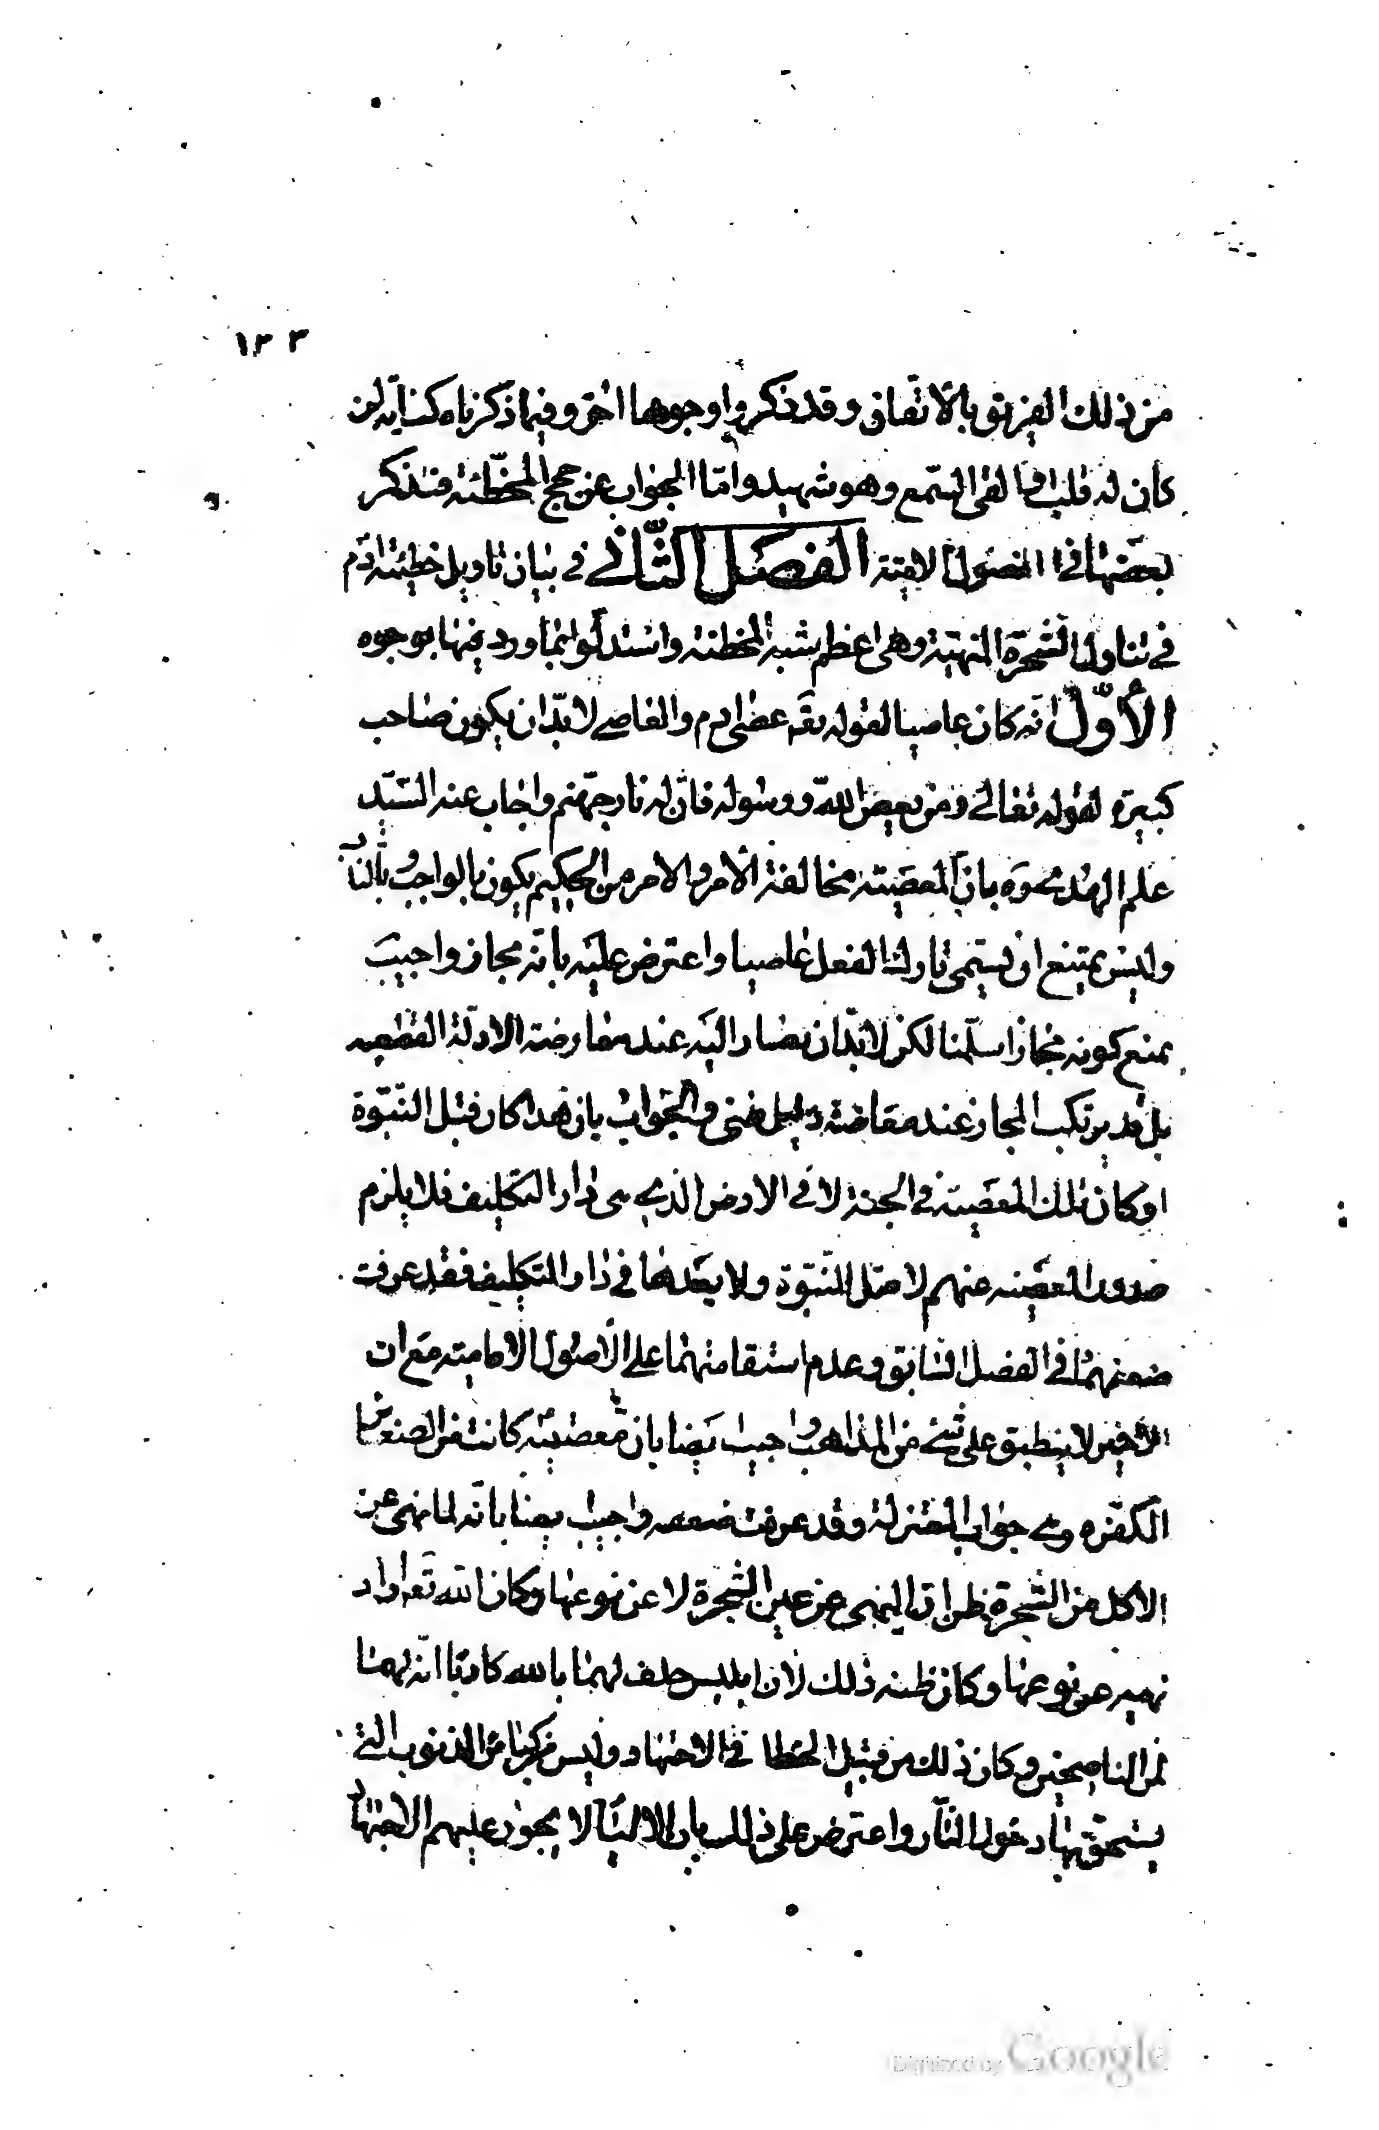 ١٢٣
من ذلك الفريق بالاتفاق وقد ذكروا وجوها اخر وفيما ذكرناه كفاية لمن
كان له قلب او القى السمع وهو شهيد واما الجواب عن حجج المخطئة فنذكر
بعضها في الفصول الاتية الفصل الثاني في بيان تاويل خطيئة ادم
في تناول الشجرة المنهية وهي اعظم شبه المخطئة واستدلوا بما ورد فيها بوجوه
الأوّل انّه كان عاصيا لقوله تعه عصى ادم والعاصي لابدّ ان يكون صاحب
كبيرة لقوله تعالى ومن يعص الله ورسوله فانّ له نار جهنم واجاب عنه السيّد
علم الهدى وغيره بان المعصية مخالفة الأمر والامر من الحكيم يكون بالواجب وبالندب
وليس يمتنع ان يسمى تارك النفل عاصيا واعترض عليه بانه مجاز واجيب
بمنع كونه مجازا سلمنا لكن لابدّ ان يصار اليه عند معارضة الادلة القطعيه
بل قد يرتكب المجاز عند معارضة دليل ظني والجواب بان هذا كان قبل النبوّة
او كان تلك المعصية في الجنة لا في الارض الذي هي دار التكليف فلا يلزم
صدور المعصية عنهم لا قبل النبوّة ولا بعدها في دار التكليف فقد عرفت
ضعفهما في الفصل السابق وعدم استقامتهما على الاصول الامامية مع ان
الاخير لا ينطبق على شئ من المذاهب واجيب ايضا بان معصيته كانت من الصغائر
المكفّرة وهي جواب المعتزلة وقد عرفت ضعفه واجيب ايضا بانّه لما نهى عن
الاكل من الشجرة ظن ان النهي عن عين الشجرة لا عن نوعها وكان الله تعه اراد
نهيه عن نوعها وكان ظنه ذلك لان ابليس حلف لهما بالله كاذبا انّه لهما
لمن الناصحين وكان ذلك من قبيل الخطا في الاجتهاد وليس من كبائر الذنوب التي
يستحق بها دخول النار واعترض على ذلك بان الانبياء لا يجوز عليهم الاجتهاد
Digitized by Google